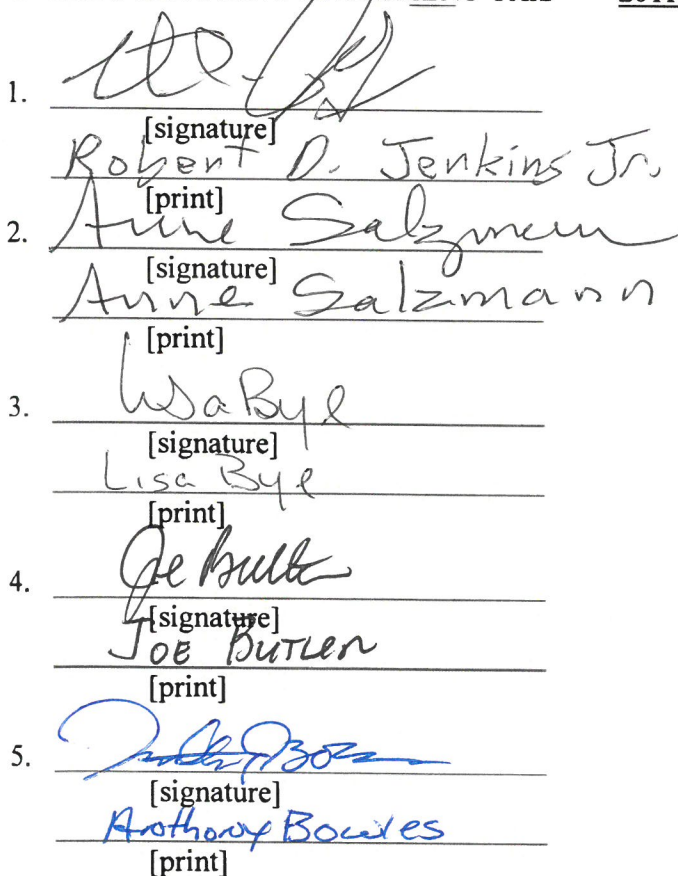 1.
[signature]
Robert D. Jenkins Jr.
[print]
2. Anne Salzmann
[signature]
Anne Salzmann
[print]
3. Lisa Bye
[signature]
Lisa Bye
[print]
4. Joe Butler
[signature]
JOE BUTLER
[print]
5.
[signature]
Anthony Bowles
[print]